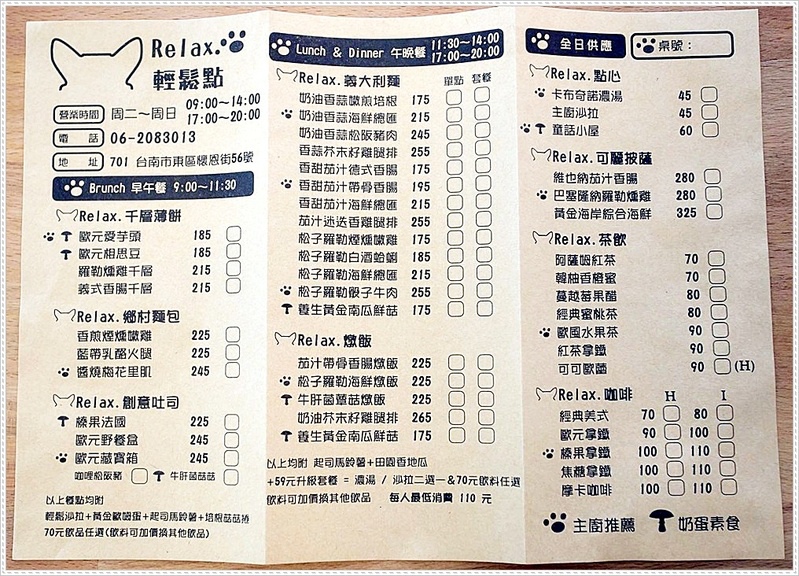 Relax.
輕鬆點
營業時間 周二～周日 09:00～14:00
17:00～20:00
電話 06-2083013
地址 701 台南市東區懷恩街56號
Brunch 早午餐 9:00～11:30
Relax.千層薄餅
歐元愛芋頭 185
歐元相思豆 185
羅勒燻雞千層 215
義式香腸千層 215
Relax.鄉村麵包
香煎煙燻嫩雞 225
藍帶乳酪火腿 225
醬燒梅花里肌 245
Relax.創意吐司
榛果法國 225
歐元野餐盒 245
歐元藏寶箱 245
咖哩松阪豬 牛肝菌菇菇
以上餐點均附
輕鬆沙拉+黃金歐姆蛋+起司馬鈴薯+培根菇菇捲
70元飲品任選(飲料可加價換其他飲品)
Lunch & Dinner 午晚餐 11:30～14:00
17:00～20:00
Relax.義大利麵 單點 套餐
奶油香蒜嫩煎培根 175
奶油香蒜海鮮總匯 215
奶油香蒜松阪豬肉 245
香蒜芥末籽雞腿排 255
香甜茄汁德式香腸 175
香甜茄汁帶骨香腸 195
香甜茄汁海鮮總匯 215
茄汁迷迭香雞腿排 255
松子羅勒煙燻嫩雞 175
松子羅勒白酒蛤蜊 185
松子羅勒海鮮總匯 215
松子羅勒骰子牛肉 255
養生黃金南瓜鮮菇 175
Relax.燉飯
茄汁帶骨香腸燉飯 225
松子羅勒海鮮燉飯 225
牛肝菌蘑菇燉飯 225
奶油芥末籽雞腿排 265
養生黃金南瓜鮮菇 175
以上均附 起司馬鈴薯+田園香地瓜
+59元升級套餐 = 濃湯 / 沙拉二選一&70元飲料任選
飲料可加價換其他飲品 每人最低消費 110 元
全日供應 桌號：
Relax.點心
卡布奇諾濃湯 45
主廚沙拉 45
童話小屋 60
Relax.可麗披薩
維也納茄汁香腸 280
巴塞隆納羅勒燻雞 280
黃金海岸綜合海鮮 325
Relax.茶飲
阿薩姆紅茶 70
韓柚香橙蜜 70
蔓越莓果醋 80
經典蜜桃茶 80
歐風水果茶 90
紅茶拿鐵 90
可可歐蕾 90 (H)
Relax.咖啡 H I
經典美式 70 80
歐元拿鐵 90 100
榛果拿鐵 100 110
焦糖拿鐵 100 110
摩卡咖啡 100 110
主廚推薦 奶蛋素食